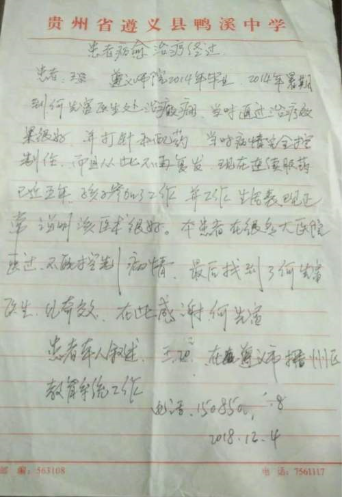 贵州省遵义县鸭溪中学
患者病愈治疗经过
患者,王 遵义师院2014年毕业 2014年暑期
到何先富医生处治癫痫,当时通过治疗效
果很好,并打针和配药 当时病情完全控
制住,而且从此不再复发,现在连续服药
已近五年,孩子参加了工作,并工作生活表现正
常,说明该医术很好。本患者在很多大医院
医过,不能控制病情,最后找到了何先富
医生,比有效,在此感谢何先富
患者本人叙述,王 在遵义市播州区
教育系统工作
电话:150850 8
2018.12.4
邮编:563108 电话:7561117